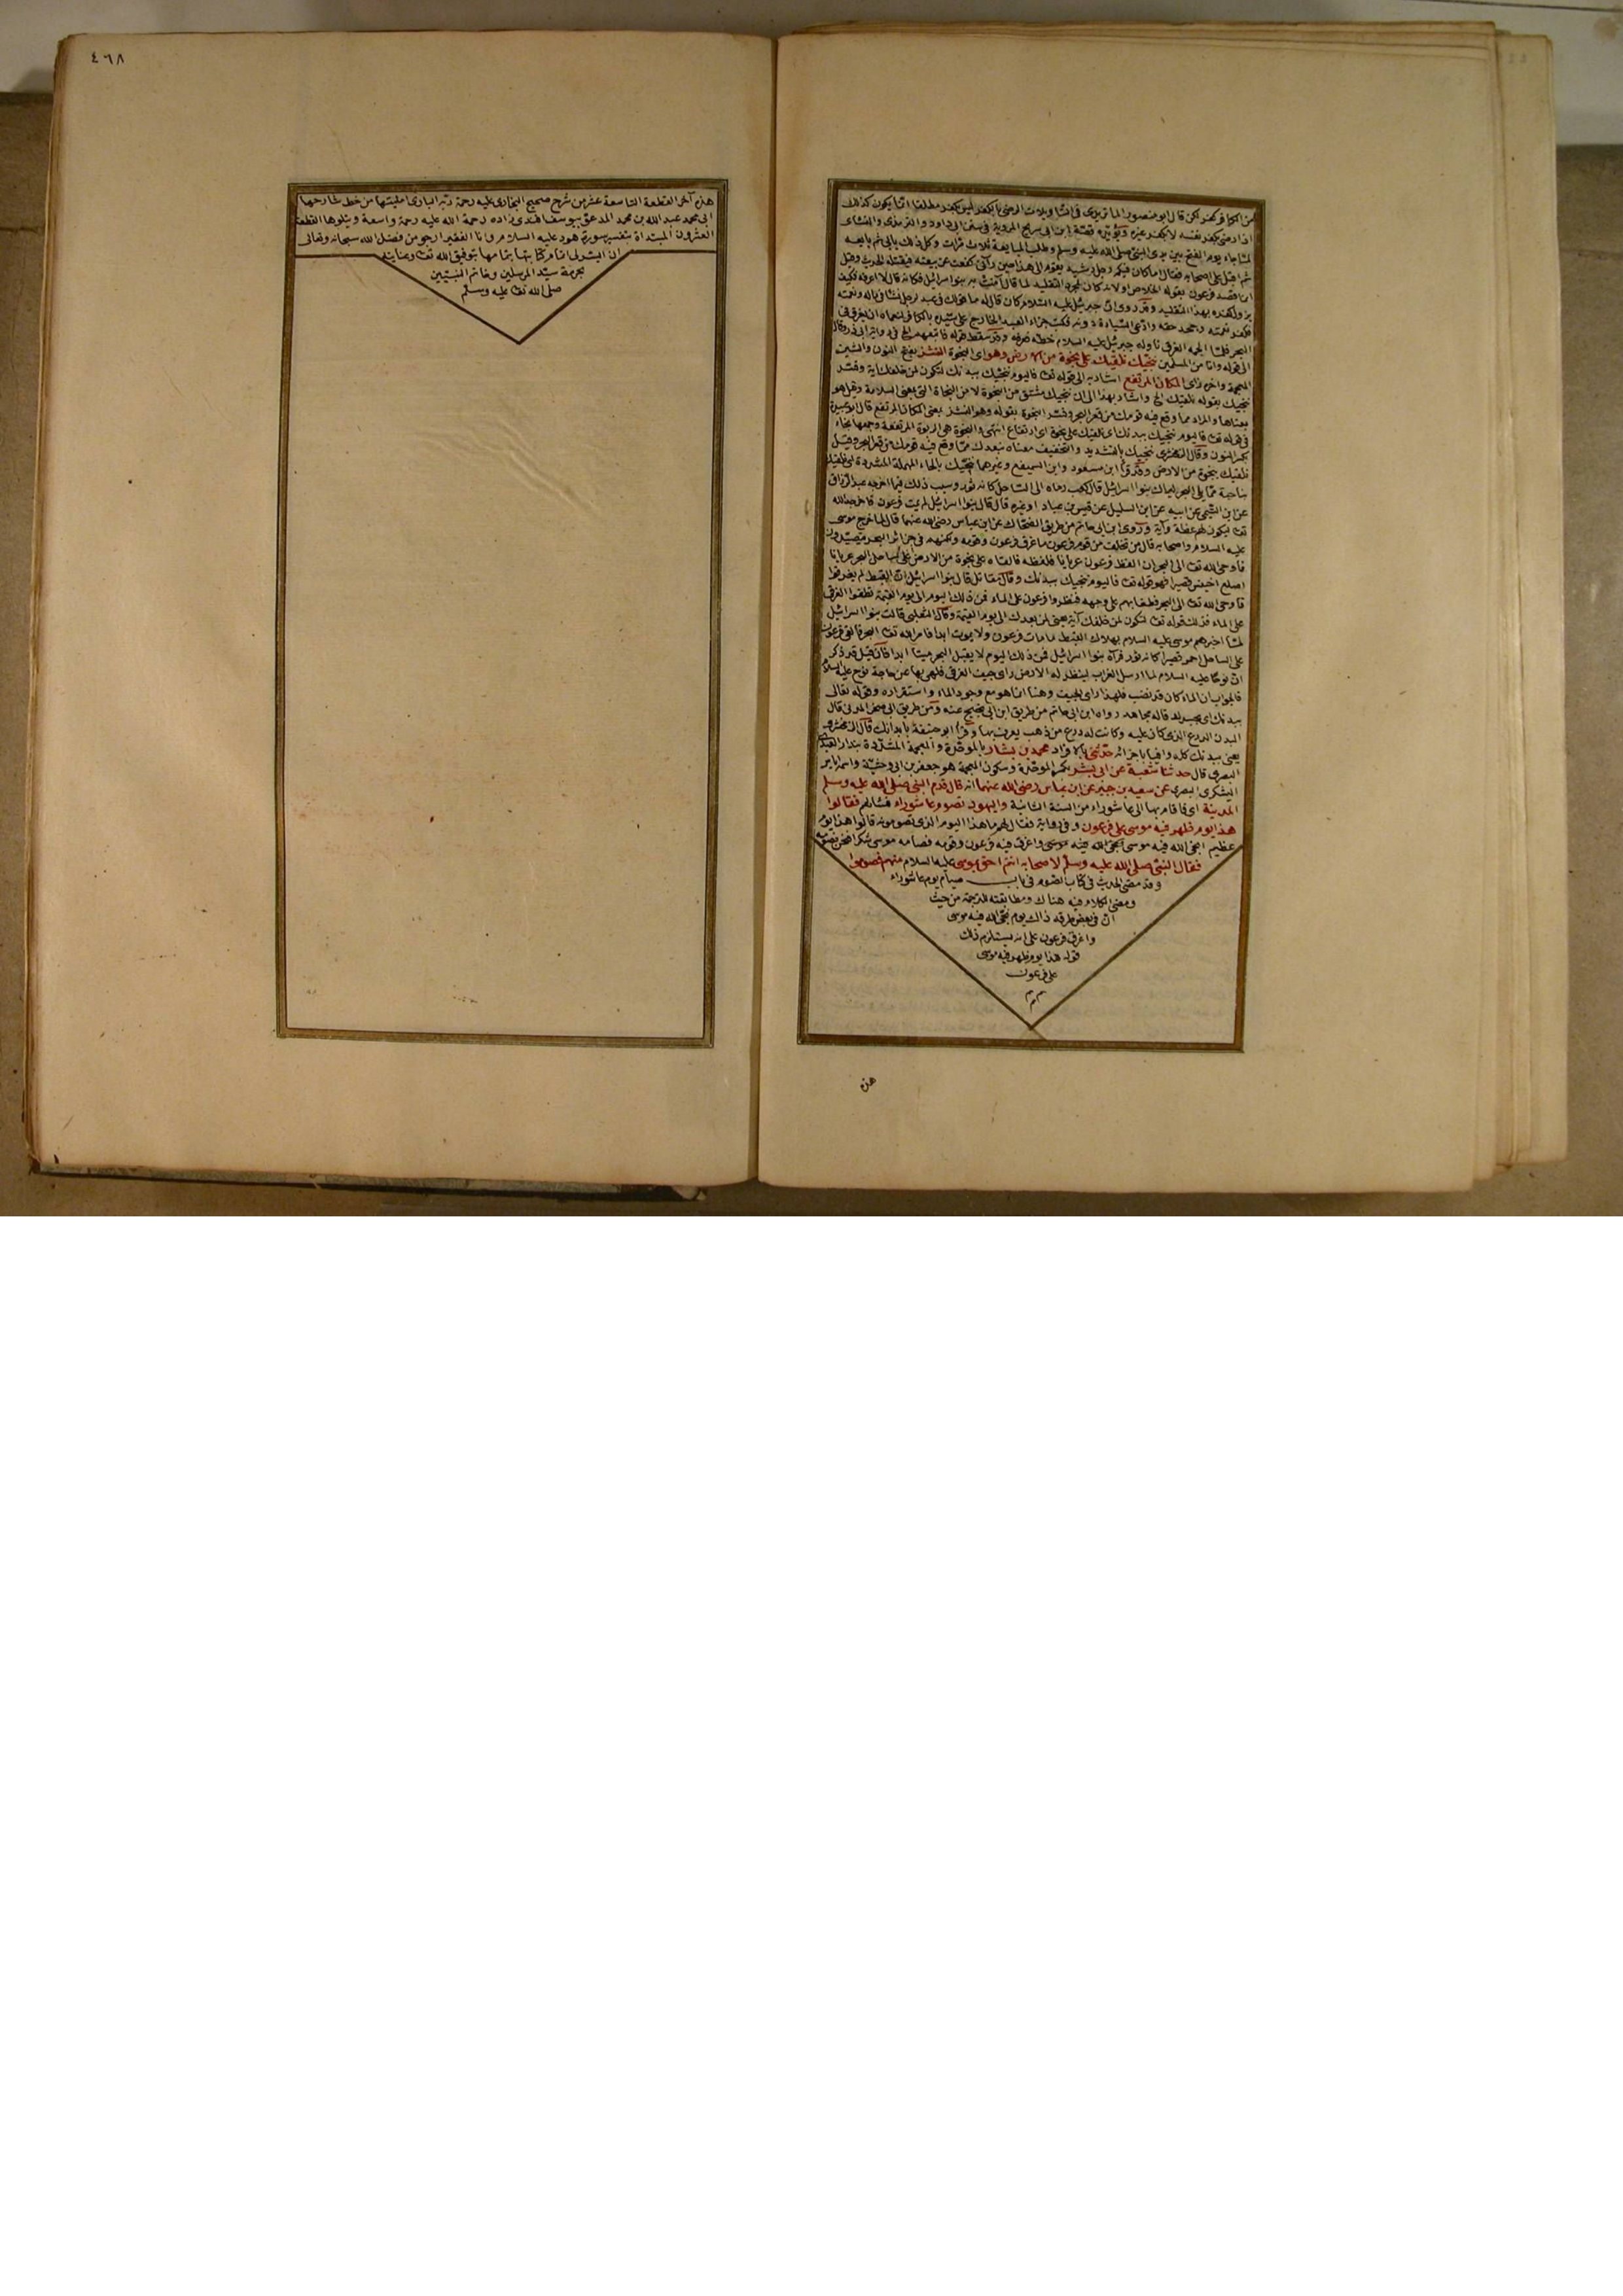 من الكافر كفر لكن قال ابو منصور الماتريدى فى التأويلات الرضى بالكفر ليس بكفر مطلقا انما يكون كذلك
اذا رضى بكفر نفسه لا بكفر غيره ويؤيده قصة ابن ابى سرح المروية فى سنن ابى داود والنسائى
لما جاء يوم الفتح بين يدى النبى صلى الله عليه وسلم وطلب المبايعة ثلاث مرات وكل ذلك يابى ثم بايعه
ثم اقبل على اصحابه فقال اما كان فيكم رجل رشيد يقوم الى هذا حين رآنى كففت عن بيعته فيقتله الحديث وقيل
انما قصد فرعون بقوله الخلاص اولانه كان لمجرد التقليد لما قال آمنت به بنوا اسرائيل فكانه قال لا اعرفه فكيف
يزول كفره بهذا التقليد وقد روى ان جبرئيل عليه السلام كان قال له ما قولك فى عبد لرجل نشأ فى ماله ونعمته
فكفر نعمته وجحد حقه وادعى السيادة دونه فكتب جزاء العبد الخارج على سيده الكافر نعماه ان يغرق فى
البحر فلما الجمه الغرق ناوله جبرئيل عليه السلام خطه فعرفه وقد سقط قوله فاتبعهم الخ فى رواية ابى ذر وقال
الى قوله وانا من المسلمين ننجيك نلقيك على نجوة من الارض وهو اى النجوة النشز بفتح النون والشين
المعجمة وآخره زاى المكان المرتفع اشار به الى قوله تعا فاليوم ننجيك ببدنك لتكون لمن خلفك آية وفسر
ننجيك بقوله نلقيك الخ واشار بهذا الى ان ننجيك مشتق من النجوة لا من النجاة التى بمعنى السلامة وقيل هو
بمعناها والمراد مما وقع فيه قومك من قعر البحر وفسر النجوة بقوله وهو النشز بمعنى المكان المرتفع قال ابو عبيدة
فى قوله تعا فاليوم ننجيك ببدنك اى نلقيك على نجوة اى ارتفاع انتهى والنجوة هى الربوة المرتفعة وجمعها نجاء
بكسر النون وقال الزمخشرى ننجيك بالتشديد والتخفيف معناه نبعدك مما وقع فيه قومك من قعر البحر وقيل
نلقيك بنجوة من الارض وقرأ ابن مسعود وابن السميفع وغيرهما ننحيك بالحاء المهملة المشددة اى نلقيك
بناحية مما يلى البحر ليراك بنوا اسرائيل قال كعب رماه الى الساحل كانه ثور وسبب ذلك فيما اخرجه عبد الرزاق
عن ابن التيمى عن ابيه عن ابى السليل عن قيس بن عباد او غيره قال قال بنوا اسرائيل لم يمت فرعون فاخرجه الله
تعا ليكون لهم عظة وآية وروى ابن ابى حاتم من طريق الضحاك عن ابن عباس رضى الله عنهما قال لما خرج موسى
عليه السلام واصحابه قال من تخلف من قوم فرعون ما غرق فرعون وقومه ولكنهم فى جزائر البحر يتصيدون
فاوحى الله تعا الى البحر ان الفظ فرعون عريانا فلفظه فالقاه على نجوة من الارض على ساحل البحر عريانا
اصلع اخينس قصيرا فهو قوله تعا فاليوم ننجيك ببدنك وقال مقاتل قال بنوا اسرائيل ان القبط لم يغرقوا
فاوحى الله تعا الى البحر فطفا بهم على وجهه فنظروا فرعون على الماء فمن ذلك اليوم الى يوم القيمة تطفوا الغرقى
على الماء فذلك قوله تعا لتكون لمن خلفك آية يعنى لمن بعدك الى يوم القيمة وقال الثعلبى قالت بنوا اسرائيل
لما اخبرهم موسى عليه السلام بهلاك القبط ما مات فرعون ولا يموت ابدا فامر الله تعا البحر فالقى فرعون
على الساحل احمر قصيرا كانه ثور فرآه بنوا اسرائيل فمن ذلك اليوم لا يقبل البحر ميتا ابدا فان قيل قد ذكر
ان نوحا عليه السلام لما ارسل الغراب لينظر له الارض راى جيف الغرقى فلهى بها عن حاجة نوح عليه السلام
فالجواب ان الماء كان قد نضب فلهذا راى الجيف وهنا انما هو مع وجود الماء واستقراره وقوله تعالى
ببدنك اى بجسدك قاله مجاهد رواه ابن ابى حاتم من طريق ابن ابى نجيح عنه ومن طريق ابى صخر المدنى قال
البدن الدرع الذى كان عليه وكانت له درع من ذهب يعرف بها وقرأ ابو حنيفة بابدانك قال الزمخشرى
يعنى ببدنك كله وافيا باجزائه حدثنى بالافراد محمد بن بشار بالموحدة والمعجمة المشددة بندار العبدى
البصرى قال حدثنا شعبة عن ابى بشر بكسر الموحدة وسكون المعجمة هو جعفر بن ابى وحشية واسمه اياس
اليشكرى البصرى عن سعيد بن جبير عن ابن عباس رضى الله عنهما انه قال قدم النبى صلى الله عليه وسلم
المدينة اى فاقام بها الى عاشوراء من السنة الثانية واليهود تصوم عاشوراء فسألهم فقالوا
هذا يوم ظهر فيه موسى على فرعون وفى رواية فقال لهم ما هذا اليوم الذى تصومونه قالوا هذا يوم
عظيم انجى الله فيه موسى واغرق فيه فرعون وقومه فصامه موسى شكرا فنحن نصومه
فقال النبى صلى الله عليه وسلم لاصحابه انتم احق بموسى عليه السلام منهم فصوموا
وقد مضى الحديث فى كتاب الصوم فى باب صيام يوم عاشوراء
ومضى الكلام فيه هناك ومطابقته للترجمة من حيث
ان فى بعض طرقه ذاك يوم نجى الله فيه موسى
واغرق فرعون على انه يستلزم ذلك
قوله هذا يوم ظهر فيه موسى
على فرعون
هذه
٤٦٨
هذه آخر القطعة التاسعة عشر من شرح صحيح البخارى عليه رحمة ربه البارى من خط شارحها
ابى محمد عبد الله بن محمد المدعو بيوسف افندى زاده رحمة الله عليه رحمة واسعة ويتلوها القطعة
العشرون المبتداة بتفسير سورة هود عليه السلام وانا الفقير ارجو من فضل الله سبحانه وتعالى
ان ييسر لى اتمام كتابتها بتمامها بتوفيق الله تعا وعنايته
بحرمة سيد المرسلين وخاتم النبيين
صلى الله تعا عليه وسلم